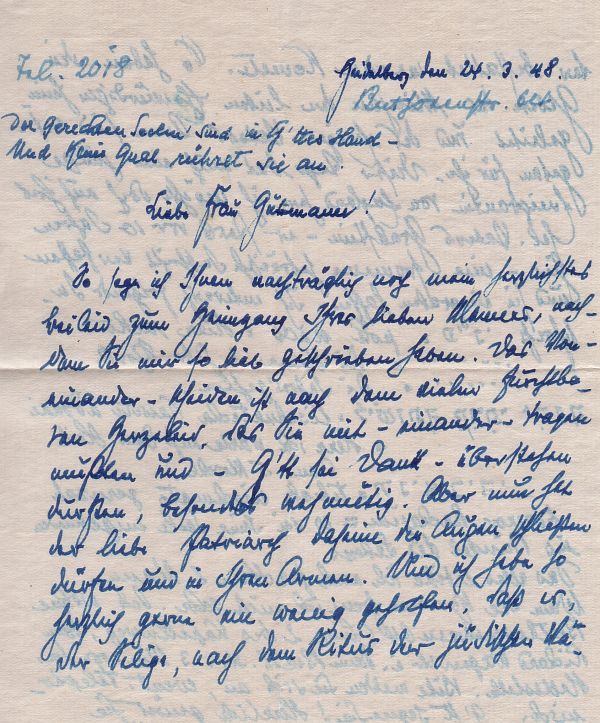 Tel. 2018
Heidelberg den 24. 3. 48.
Der Gerechten Seelen sind in G'ttes Hand –
Und keine Qual rühret sie an.
Liebe Frau Gutmann!
So sage ich Ihnen nachträglich noch mein herzlichstes
Beileid zum Heimgang Ihres lieben Mannes, nach-
dem Sie mir so lieb geschrieben haben. Das Von-
einander-scheiden ist nach dem vielen furchtba-
ren Herzeleid, das Sie mit-einander-tragen
mußten und – G'tt sei Dank – überstehen
durften, besonders wehmütig. Aber nun hat
der liebe Patriarch daheim die Augen schließen
dürfen und in Ihren Armen. Und ich habe so
herzlich gerne ein wenig geholfen, daß er,
der Selige, nach dem Ritus der jüdischen Vä-